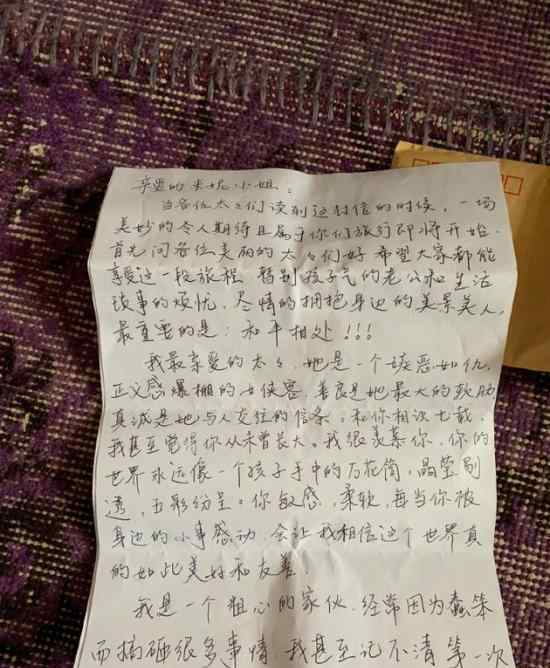 亲爱的米妮小姐：
当各位太太们读到这封信的时候，一场
美妙的令人期待且属于你们旅行即将开始.
首先问各位美丽的太太们好 希望大家都能
享受这一段旅程 暂别孩子气的老公和生活
琐事的烦忧，尽情的拥抱身边的美景美人，
最重要的是：和平相处！！！
我最亲爱的太太，她是一个嫉恶如仇，
正义感爆棚的女侠客，善良是她最大的软肋
真诚是她与人交往的信条。和你相识七载，
我甚至觉得你从未曾长大。我很羡慕你，你的
世界永远像一个孩子手中的万花筒，晶莹剔
透，五彩纷呈。你敏感，柔软，每当你被
身边的小事感动，会让我相信这个世界真
的如此美好和友善！
我是一个粗心的家伙，经常因为蠢笨
而搞砸很多事情，我甚至记不清第一次